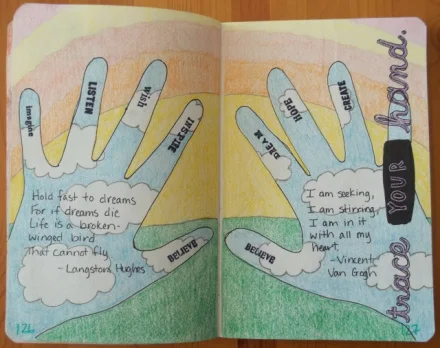 imagine
LISTEN
Wish
INSPIRE
BELIEVE
Hold fast to dreams
For if dreams die
Life is a broken-
winged bird
That cannot fly
- Langston Hughes
126
DREAM
HOPE
CREATE
BELIEVE
I am seeking,
I am stirring,
I am in it
with all my
heart.
-Vincent
Van Gogh
trace YOUR hand.
127